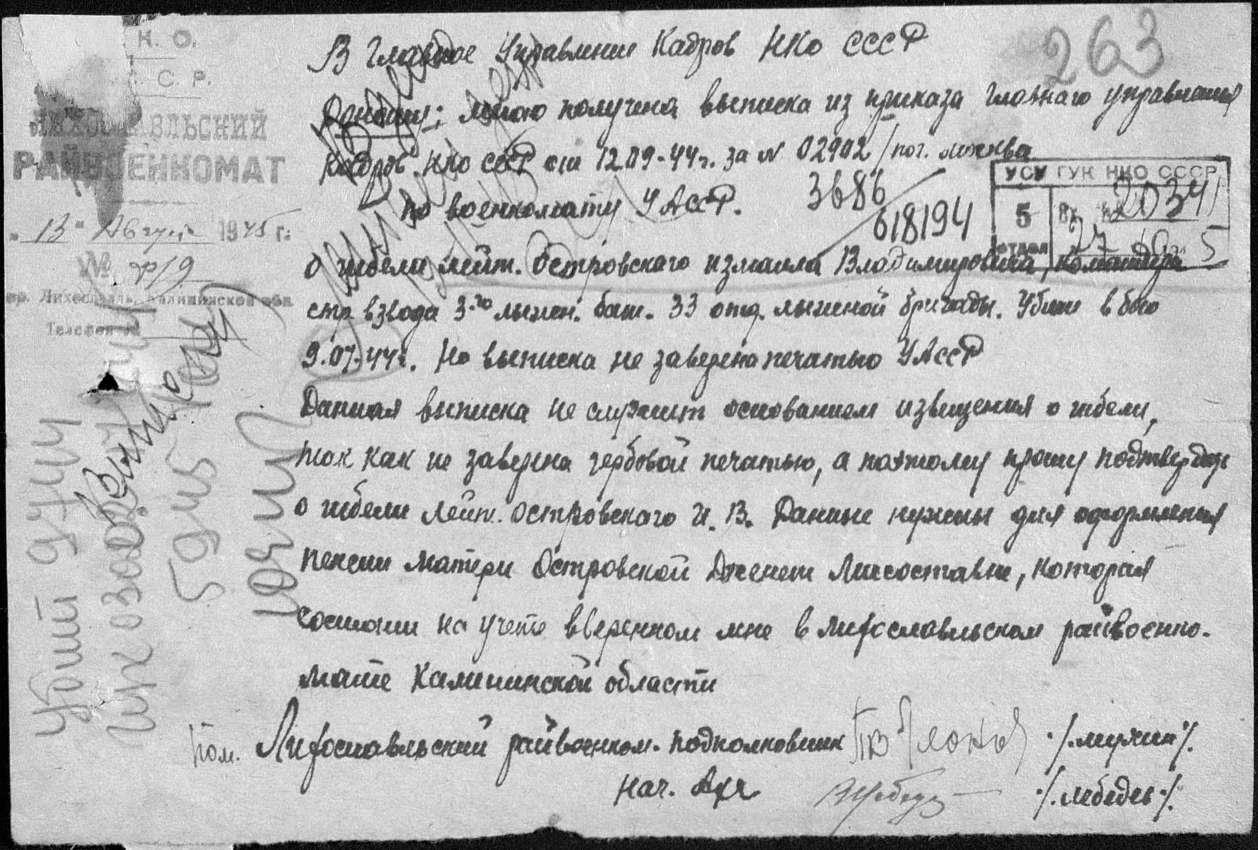 Н. О.
С. Р.
ЛИХОСЛАВЛЬСКИЙ
РАЙВОЕНКОМАТ
„13" Август 1945 г.
№ 2р/9
гор. Лихославль, Калининской обл.
Телефон №
263
В Главное Управление Кадров НКО СССР
мною получена выписка из приказа Главного управления
Кадров НКО СССР от 12.09-44г. за N 02902/пог. Москва
по военкомату УАССР.
3686
618194
УСУ ГУК НКО СССР
5
отдел
Вх. 20341
27 5
о гибели лейт. Островского Измаила Владимировича, командира
стр взвода 3го лыжн. бат. 33 отд. лыжной бригады. Убит в бою
9.07.44г. Но выписка не заверена печатью УАССР
Данная выписка не служит основанием извещения о гибели,
так как не заверена гербовой печатью, а поэтому прошу подтвердить
о гибели лейт. Островского И. В. Данные нужны для оформления
пенсии матери Островской Дженет, которая
состоит на учете вверенном мне в Лихославльском райвоенко-
мате Калининской области
Пом. Лихославльский райвоенком подполковник
Нач.
/Лебедев/
убит 9744